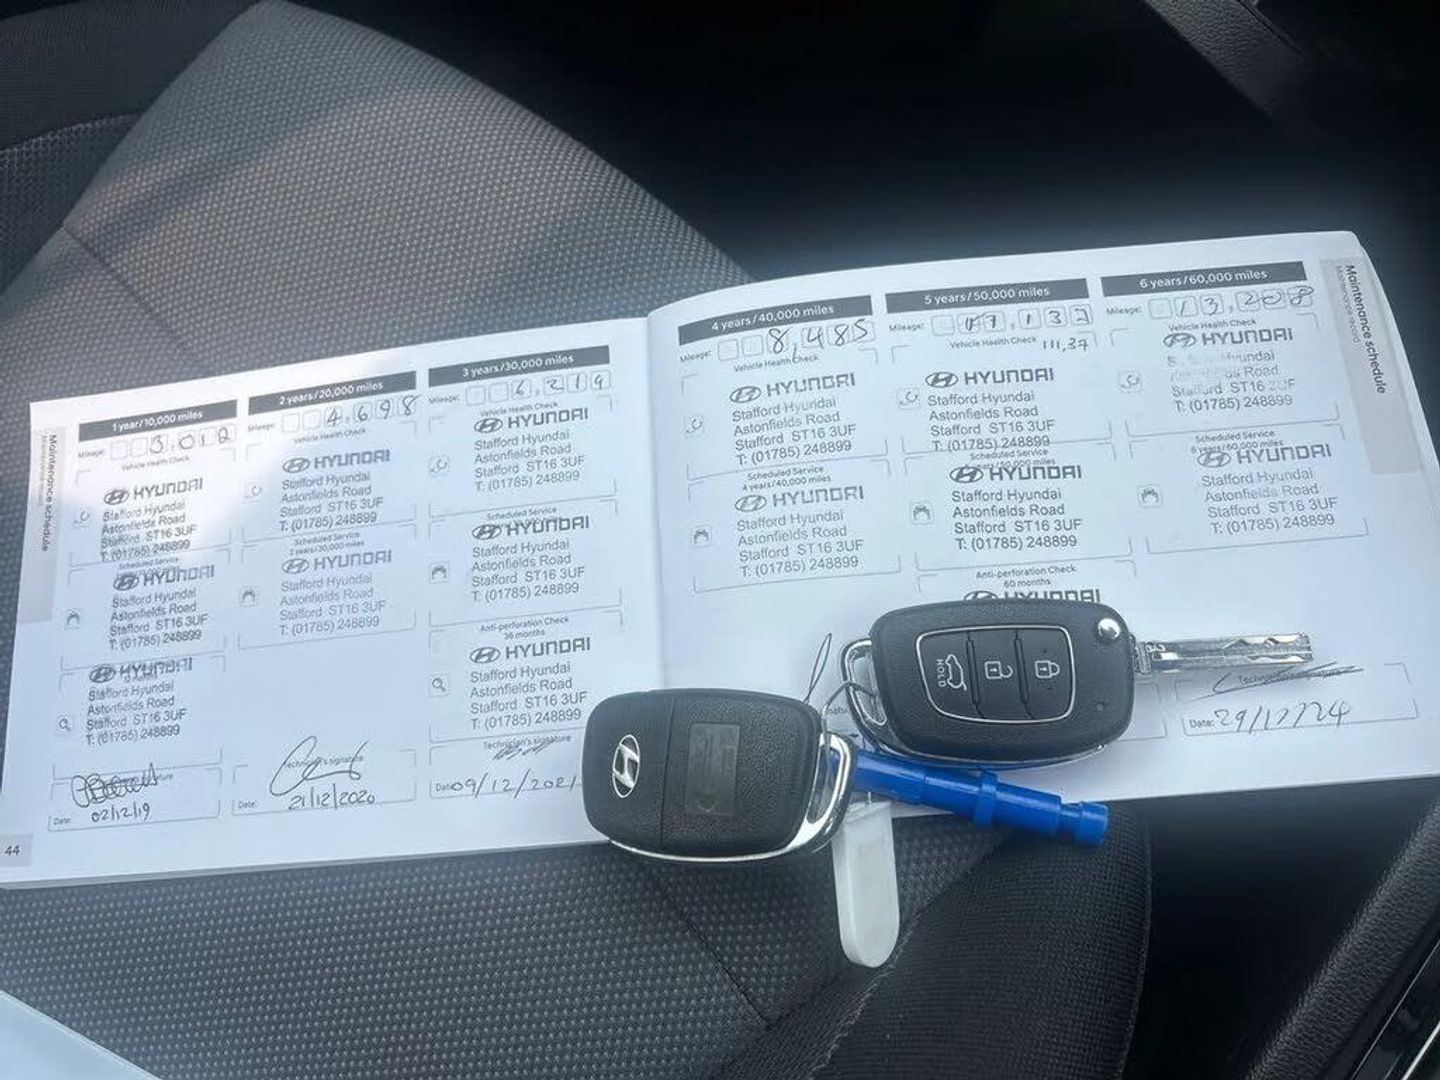 Maintenance schedule
Maintenance record
1 year/10,000 miles
Mileage: 3,012
Vehicle Health Check
HYUNDAI
Stafford Hyundai
Astonfields Road
Stafford ST16 3UF
T: (01785) 248899
Scheduled Service
HYUNDAI
Stafford Hyundai
Astonfields Road
Stafford ST16 3UF
T: (01785) 248899
HYUNDAI
Stafford Hyundai
Astonfields Road
Stafford ST16 3UF
T: (01785) 248899
Date: 02/12/19
44
2 years/20,000 miles
Mileage: 4,698
Vehicle Health Check
HYUNDAI
Stafford Hyundai
Astonfields Road
Stafford ST16 3UF
T: (01785) 248899
Scheduled Service
2 years/20,000 miles
HYUNDAI
Stafford Hyundai
Astonfields Road
Stafford ST16 3UF
T: (01785) 248899
Technician's signature
Date: 21/12/2020
3 years/30,000 miles
Mileage: 6,219
Vehicle Health Check
HYUNDAI
Stafford Hyundai
Astonfields Road
Stafford ST16 3UF
T: (01785) 248899
Scheduled Service
HYUNDAI
Stafford Hyundai
Astonfields Road
Stafford ST16 3UF
T: (01785) 248899
Anti-perforation Check
36 months
HYUNDAI
Stafford Hyundai
Astonfields Road
Stafford ST16 3UF
T: (01785) 248899
Technician's signature
Date: 09/12/2021
4 years/40,000 miles
Mileage: 8,485
Vehicle Health Check
HYUNDAI
Stafford Hyundai
Astonfields Road
Stafford ST16 3UF
T: (01785) 248899
Scheduled Service
4 years/40,000 miles
HYUNDAI
Stafford Hyundai
Astonfields Road
Stafford ST16 3UF
T: (01785) 248899
5 years/50,000 miles
Mileage:
Vehicle Health Check 111,37
HYUNDAI
Stafford Hyundai
Astonfields Road
Stafford ST16 3UF
T: (01785) 248899
Scheduled Service
HYUNDAI
Stafford Hyundai
Astonfields Road
Stafford ST16 3UF
T: (01785) 248899
Anti-perforation Check
60 months
HYUNDAI
6 years/60,000 miles
Mileage: 13,208
Vehicle Health Check
HYUNDAI
Hyundai
Road
Stafford ST16 3UF
T: (01785) 248899
Scheduled Service
6 years/60,000 miles
HYUNDAI
Stafford Hyundai
Astonfields Road
Stafford ST16 3UF
T: (01785) 248899
Technician's signature
Date: 29/12/24
Maintenance schedule
Maintenance record
HOLD